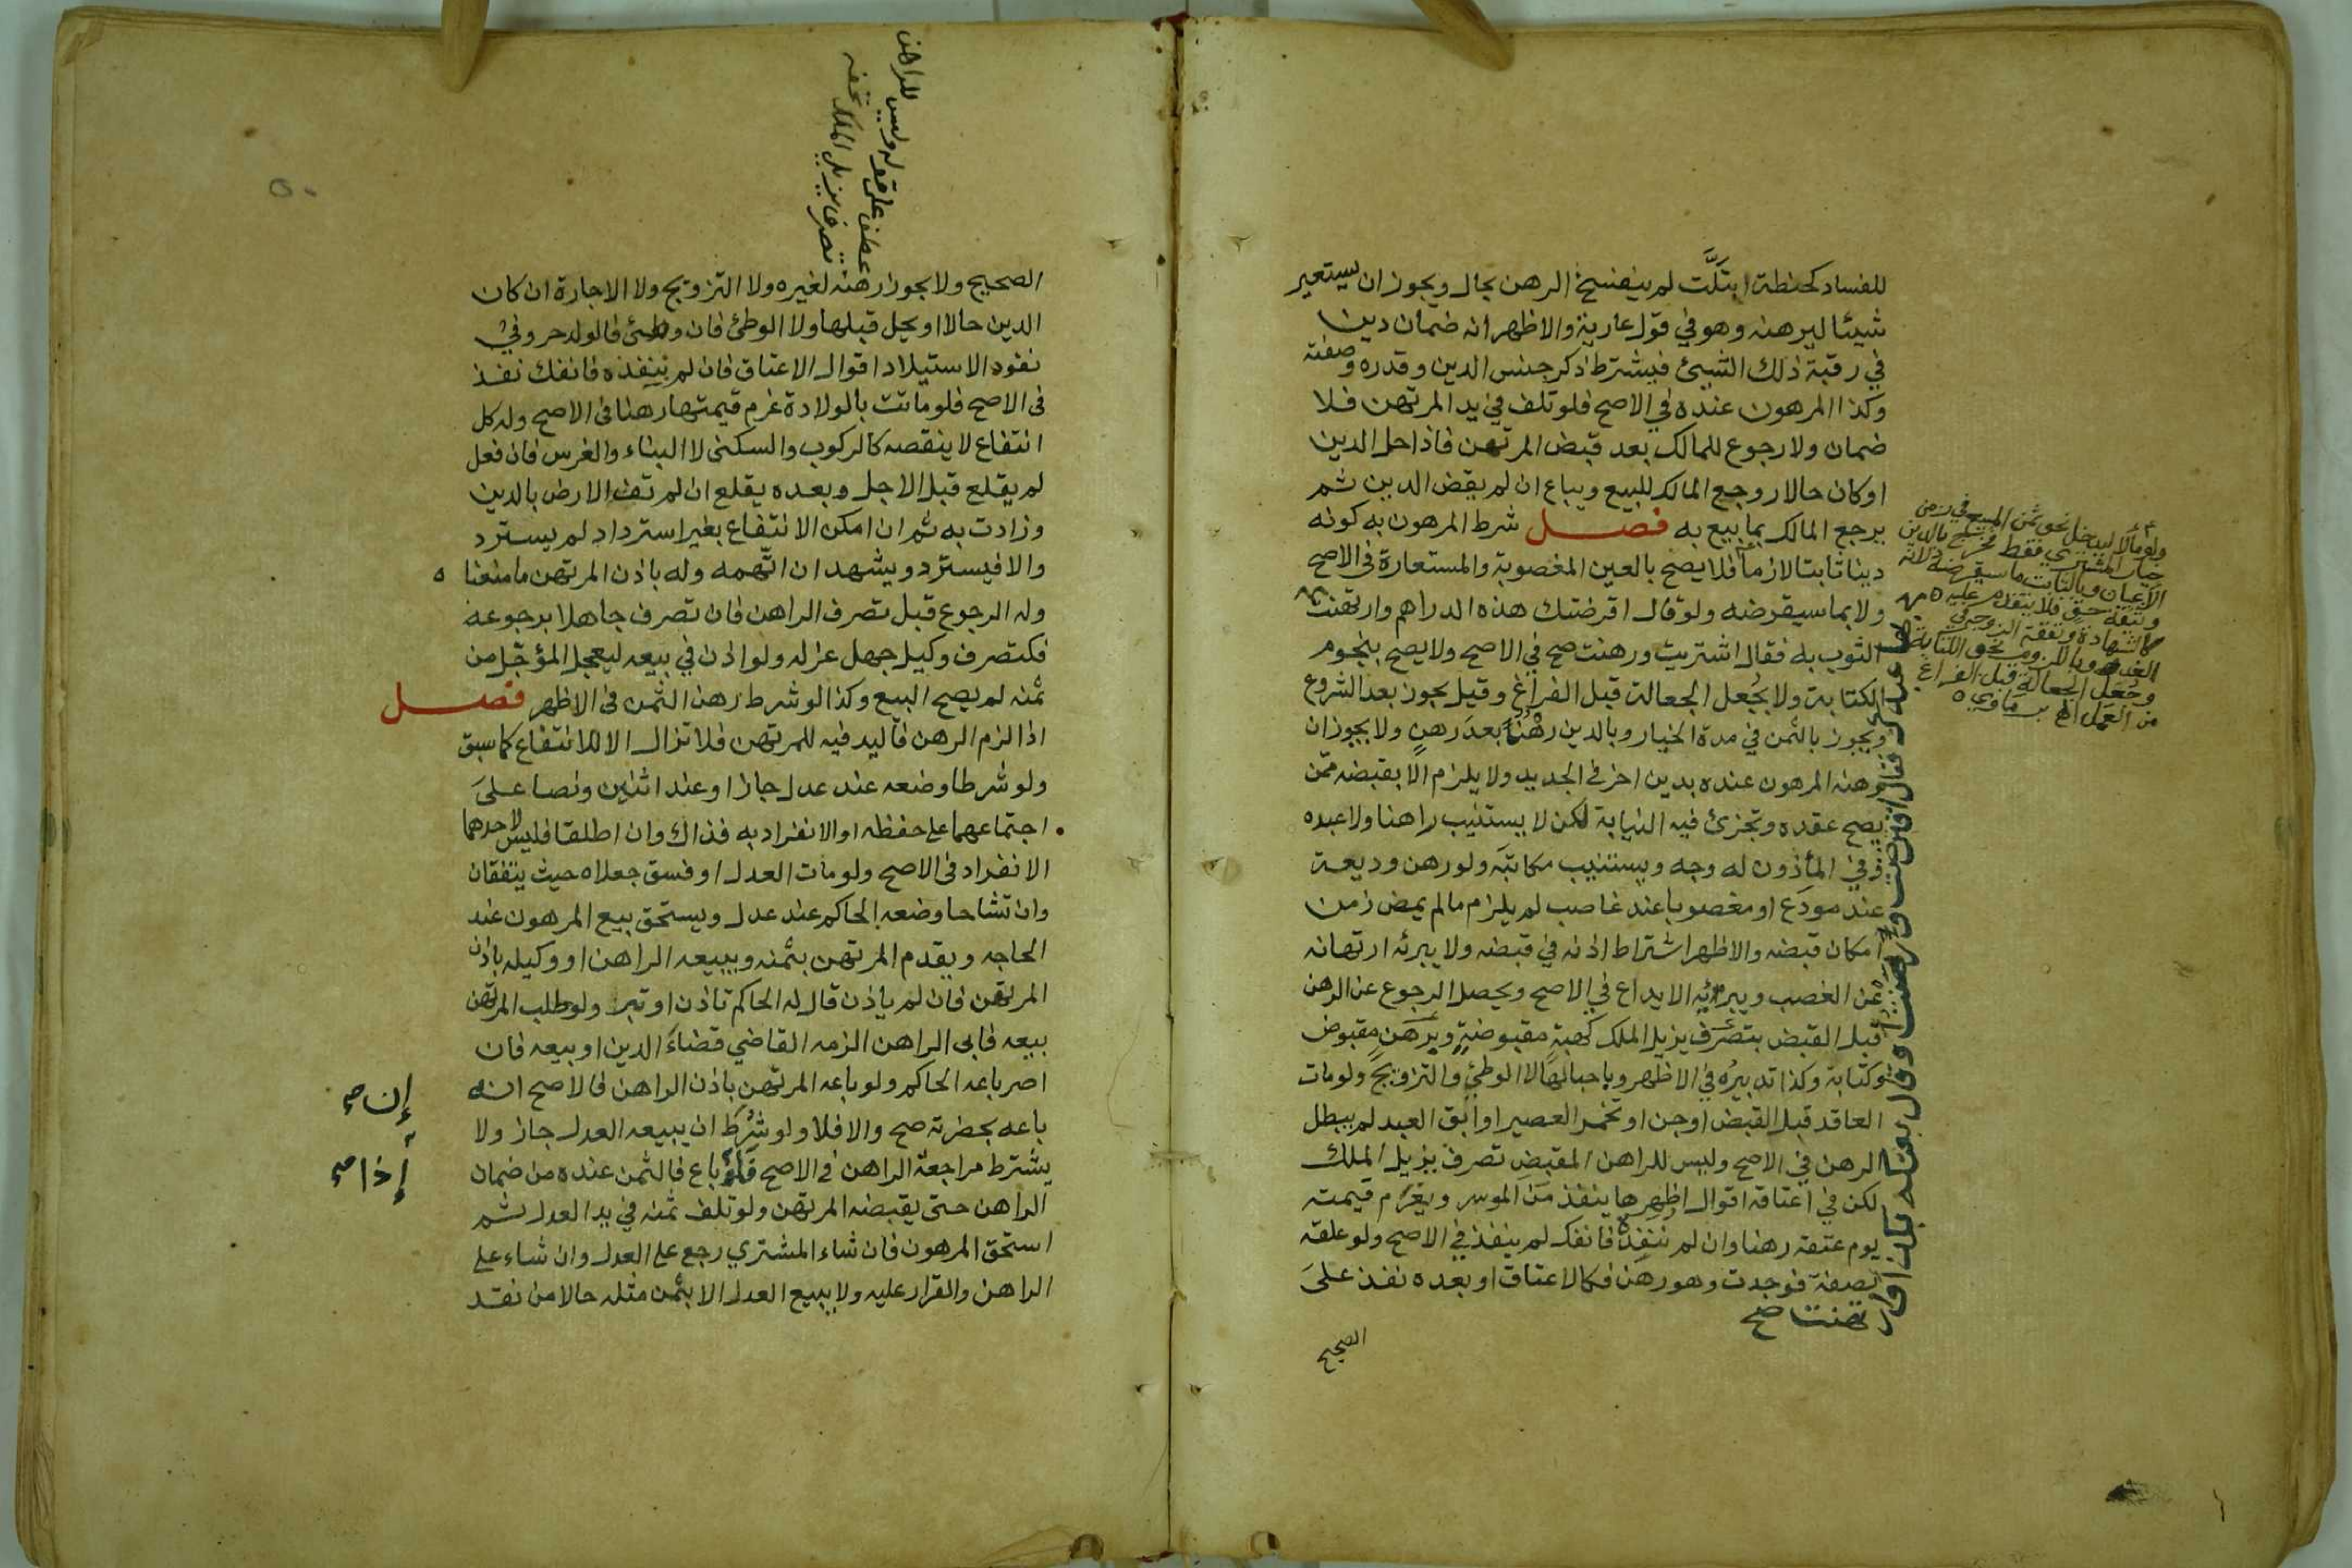 للفساد كحنطة ابتلَّت لم ينفسخ الرهن بحال ويجوز ان يستعير
شيئا ليرهنه وهو في قول عارية والاظهر انه ضمان دين
في رقبة ذلك الشيئ فيشترط ذكر جنس الدين وقدره وصفته
وكذا المرهون عنده في الاصح فلو تلف في يد المرتهن فلا
ضمان ولا رجوع للمالك بعد قبض المرتهن فاذا حل الدين
او كان حالا روجع المالك للبيع ويباع ان لم يقض الدين ثم
يرجع المالك بما بيع به فصل شرط المرهون به كونه
دينا ثابتا لازما فلا يصح بالعين المغصوبة والمستعارة في الاصح
ولا بما سيقرضه ولو قال اقرضتك هذه الدراهم وارتهنت
الثوب به فقال اشتريت ورهنت صح في الاصح ولا يصح بنجوم
الكتابة ولا بجُعل الجعالة قبل الفراغ وقيل يجوز بعد الشروع
ويجوز بالثمن في مدة الخيار وبالدين رهْنٌ بعدَ رهنٍ ولا يجوز ان
يرهنه المرهون عنده بدين اخر في الجديد ولا يلزم الا بقبضه ممّن
يصح عقده وتجزئ فيه النيابة لكن لا يستنيب راهنا ولا عبده
وفي المأذون له وجه ويستنيب مكاتبَه ولو رهن وديعة
عند مودَع او مغصوبا عند غاصب لم يلزم ما لم يمض زمن
امكان قبضه والاظهر اشتراط اذنه في قبضه ولا يبرئه ارتهانه
عن الغصب ويبرئه الايداع في الاصح ويحصل الرجوع عن الرهن
قبل القبض بتصرّف يزيل الملك كهبةٍ مقبوضةٍ وبرهنٍ مقبوض
وكتابة وكذا تدبيرُه في الاظهر وباحبالها لا الوطئِ والتزويجِ ولو مات
العاقد قبل القبض او جن او تخمر العصير او ابق العبد لم يبطل
الرهن في الاصح وليس للراهن المقبِض تصرف يزيل الملك
لكن في اعتاقه اقوال اظهرها ينفذ من الموسر ويغرَم قيمته
يوم عتقه رهنا وان لم ننفذه فانفك لم ينفذ في الاصح ولو علقه
بصفة فوجدت وهو رهن فكالاعتاق او بعده نفذ علىَ
الصحيح
فقال اقترضت ورهنت او قال بعتكه بكذا وارتهنت صح
للراهن
عطف على قوله وليس
تصرف يزيل الملك تحفه
الصحيح ولا يجوز رهنه لغيره ولا التزويج ولا الاجارة ان كان
الدين حالا او يحل قبلها ولا الوطئ فان وطئ فالولد حر وفي
نفوذ الاستيلاد اقوال الاعتاق فان لم ننفذه فانفك نفذ
في الاصح فلو ماتت بالولادة غرم قيمتها رهنا في الاصح وله كل
انتفاع لا ينقصه كالركوب والسكنى لا البناء والغرس فان فعل
لم يقلع قبل الاجل وبعده يقلع ان لم تف الارض بالدين
وزادت به ثم ان امكن الانتفاع بغير استرداد لم يسترد
والا فيسترد ويشهد ان اتّهمه وله باذن المرتهن ما منعنا ه
وله الرجوع قبل تصرف الراهن فان تصرف جاهلا برجوعه
فكتصرف وكيل جهل عزله ولو اذن في بيعه ليعجل المؤجّل من
ثمنه لم يصح البيع وكذا لو شرط رهن الثمن في الاظهر فصل
اذا لزم الرهن فاليد فيه للمرتهن فلا تزال الا للانتفاع كما سبق
ولو شرطا وضعه عند عدل جاز او عند اثنين ونصا علىَ
اجتماعهما على حفظه او الانفراد به فذاك وان اطلقا فليس لاحدهما
الانفراد في الاصح ولو مات العدل او فسق جعلاه حيث يتفقان
وان تشاحا وضعه الحاكم عند عدل ويستحق بيع المرهون عند
الحاجه ويقدم المرتهن بثمنه ويبيعه الراهن او وكيله باذن
المرتهن فان لم ياذن قال له الحاكم تاذن او تبر ولو طلب المرتهن
بيعه فابى الراهن الزمه القاضي قضاءَ الدين او بيعه فان
اصر باعه الحاكم ولو باعه المرتهن باذن الراهن فالاصح انه
باعه بحضرته صح والا فلا ولو شُرِطَ ان يبيعه العدل جاز ولا
يشترط مراجعة الراهن في الاصح فلو باع فالثمن عنده من ضمان
الراهن حتى يقبضه المرتهن ولو تلف ثمنه في يد العدل ثم
استحق المرهون فان شاء المشتري رجع على العدل وان شاء على
الراهن والقرار عليه ولا يبيع العدل الا بثمن مثله حالا من نقد
إن صح
إذا صح